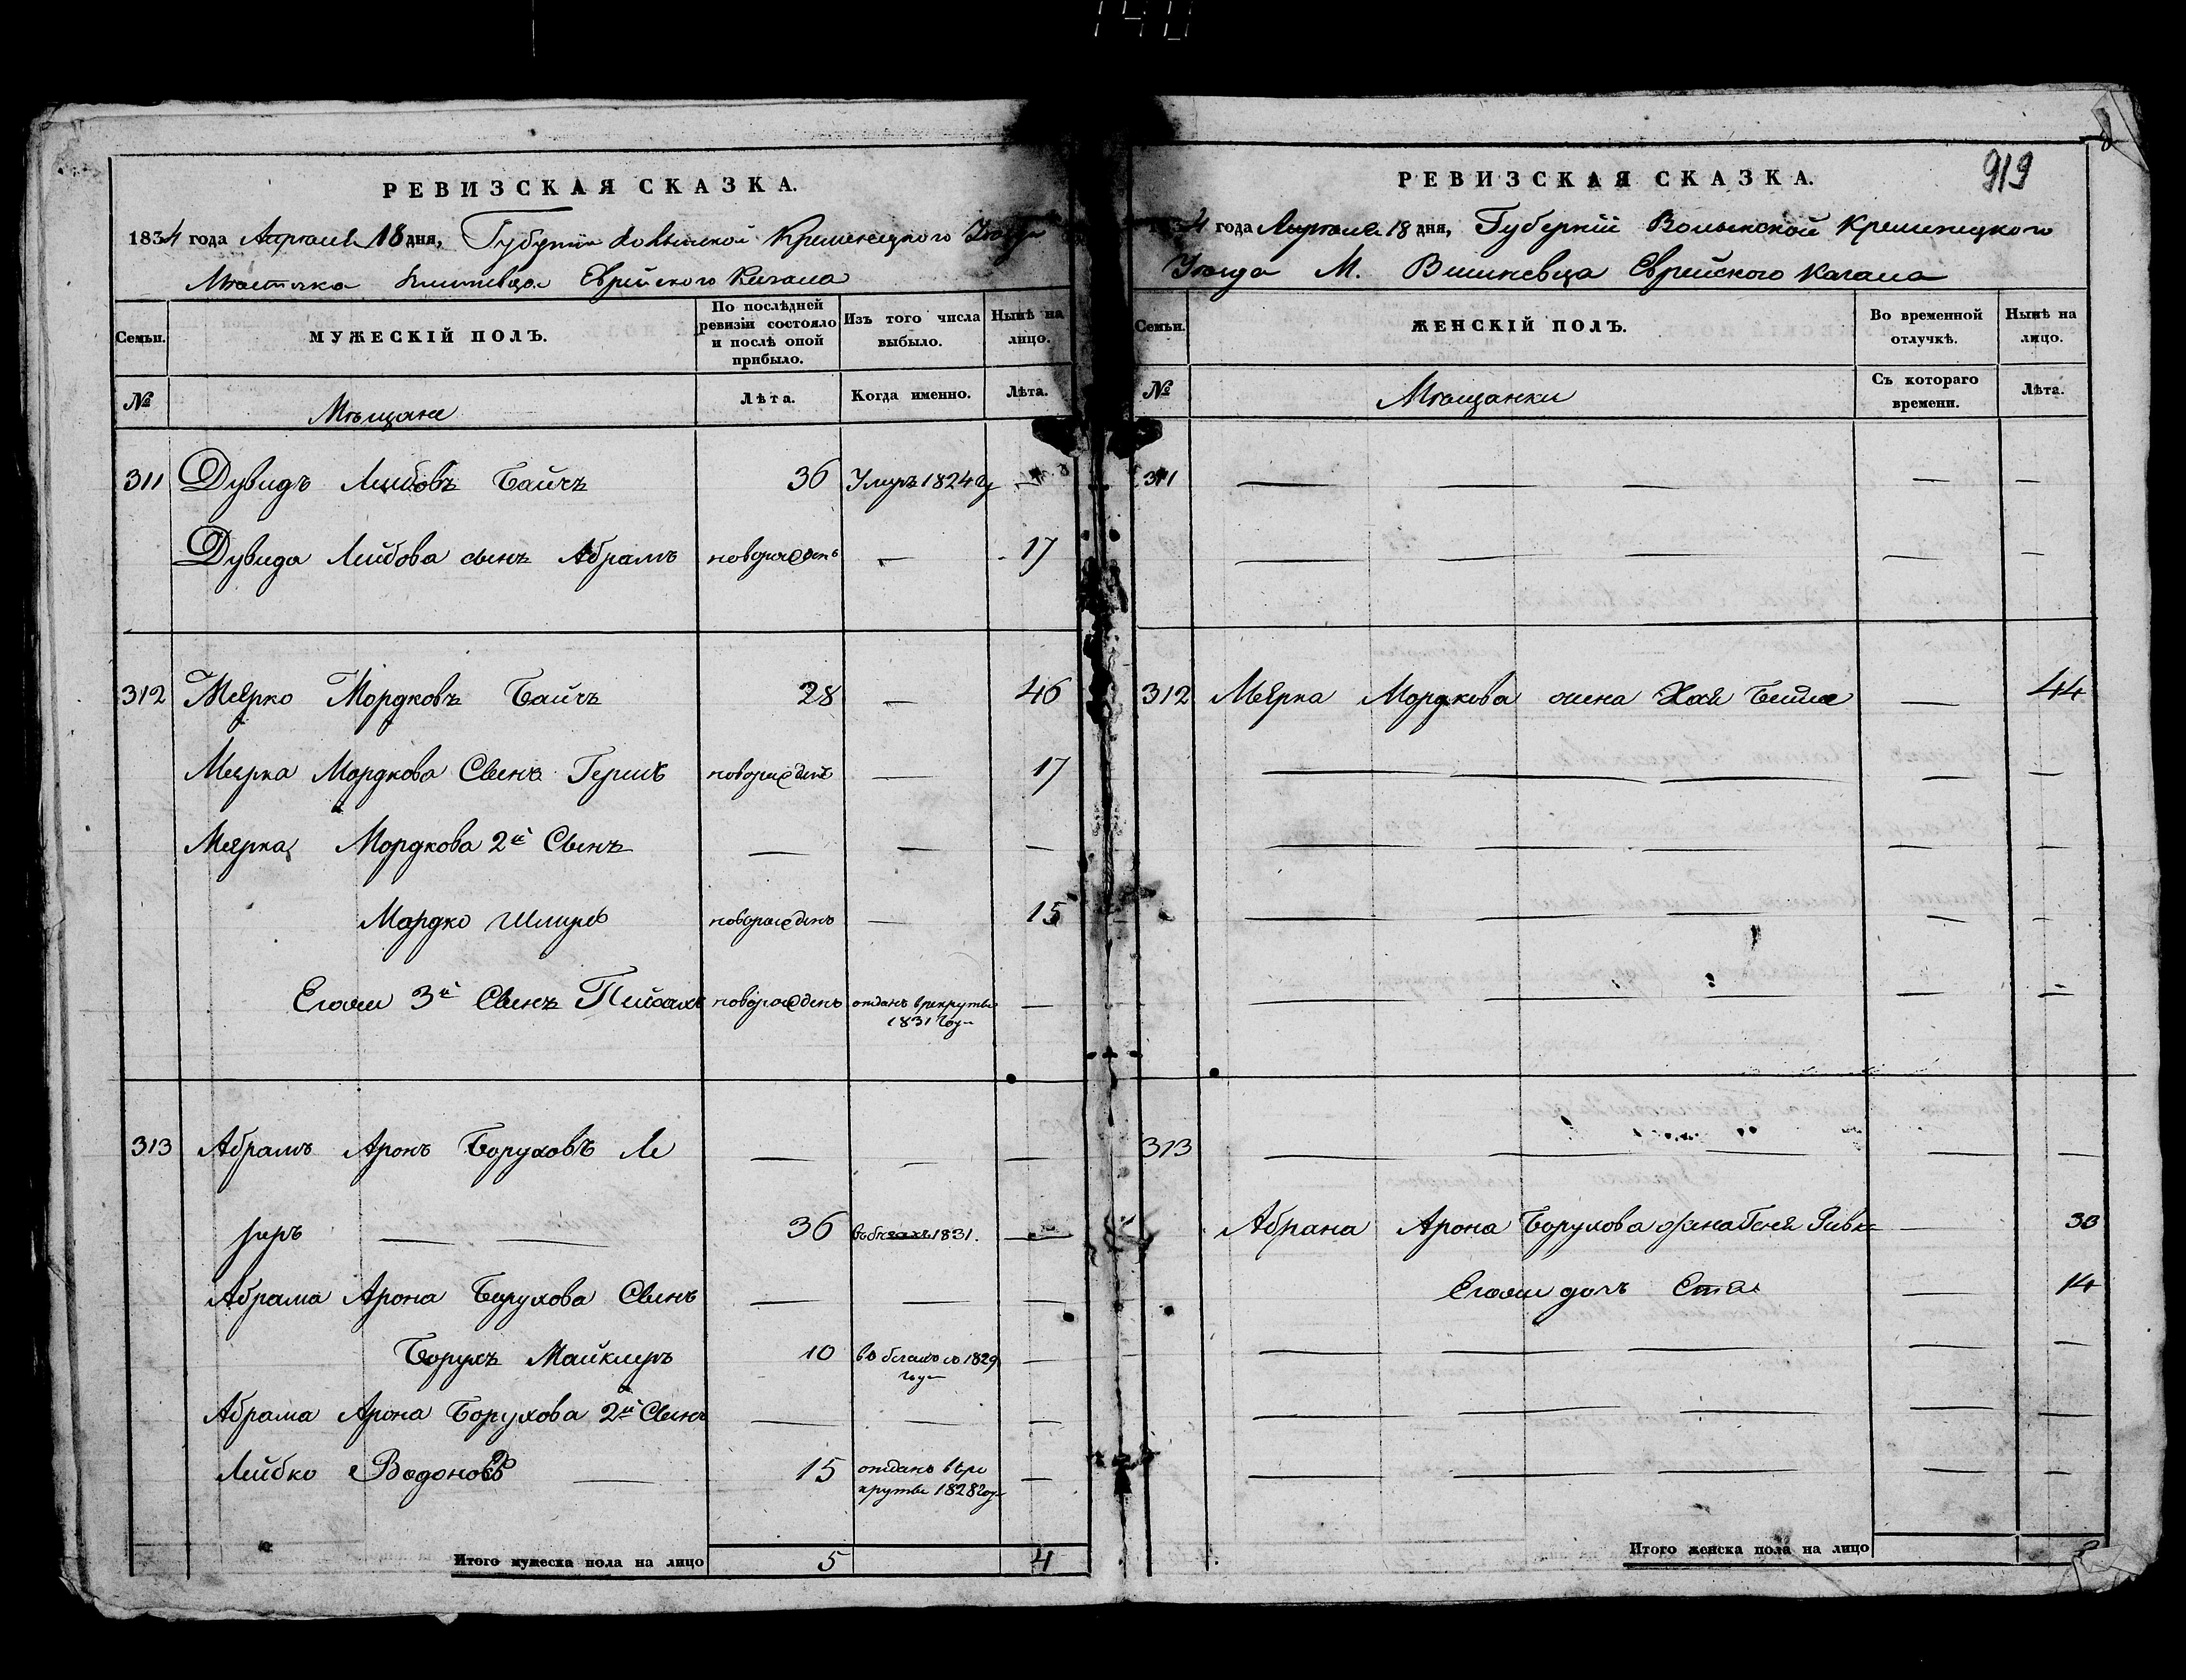 140
РЕВИЗСКАЯ СКАЗКА.
1834 года Апреля 18 дня, Губернии Волынской Кременецкого Уезда
Местечка Вишневца Еврейского Кагала
Семьи. МУЖЕСКІЙ ПОЛЪ. По послѣдней ревизіи состояло и послѣ оной прибыло. Изъ того числа выбыло. Нынѣ на лицо.
№ Мѣщане Лѣта. Когда именно. Лѣта.
311 Дувидъ Лейбовъ Байчъ 36 Умеръ 1824 г —
Дувида Лейбова сынъ Абрамъ новорожденъ — 17
312 Меерко Мордковъ Байчъ 28 — 46
Меерка Мордкова Сынъ Гершъ новорожденъ — 17
Меерка Мордкова 2й Сынъ — — —
Мордко Шмиръ новорожденъ — 15
Егоже 3й Сынъ Пейсахъ новорожденъ отданъ в рекруты —
1831 году
313 Абрамъ Аронъ Боруховъ Ле — — —
реръ — — 36 въ бегахъ 1831. —
Абрама Арона Борухова Сынъ — — —
Борухъ Майклеръ 10 въ бегахъ съ 1829 —
году
Абрама Арона Борухова 2й Сынъ — —
Лейбко Водоновъ — 15 отданъ в ре —
круты 1828 году
Итого мужеска пола на лицо 5 4
919
РЕВИЗСКАЯ СКАЗКА.
4 года Апреля 18 дня, Губерніи Волынской Кременецкого
Уезда М. Вишневца Еврейского Кагала
Семьи. ЖЕНСКІЙ ПОЛЪ. Во временной отлучкѣ. Нынѣ на лицо.
№ Мѣщанки Съ котораго времени. Лѣта.
311 — — — — —
— — — — —
312 Меерка Мордкова жена Хая Бейла — 44
— — — — —
— — — — —
— — — — —
— — — — —
313 — — — — —
Абрама Арона Борухова жена Геня Ривка — 30
Егоже дочь Стая — 14
— — — — —
— — — — —
— — — — —
Итого женска пола на лицо